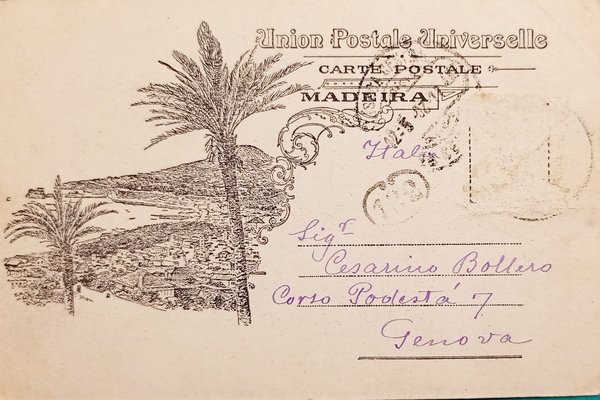 Union Postale Universelle
CARTE POSTALE
MADEIRA
Italia
Sigr
Cesarino Bollero
Corso Podestá 7
Genova